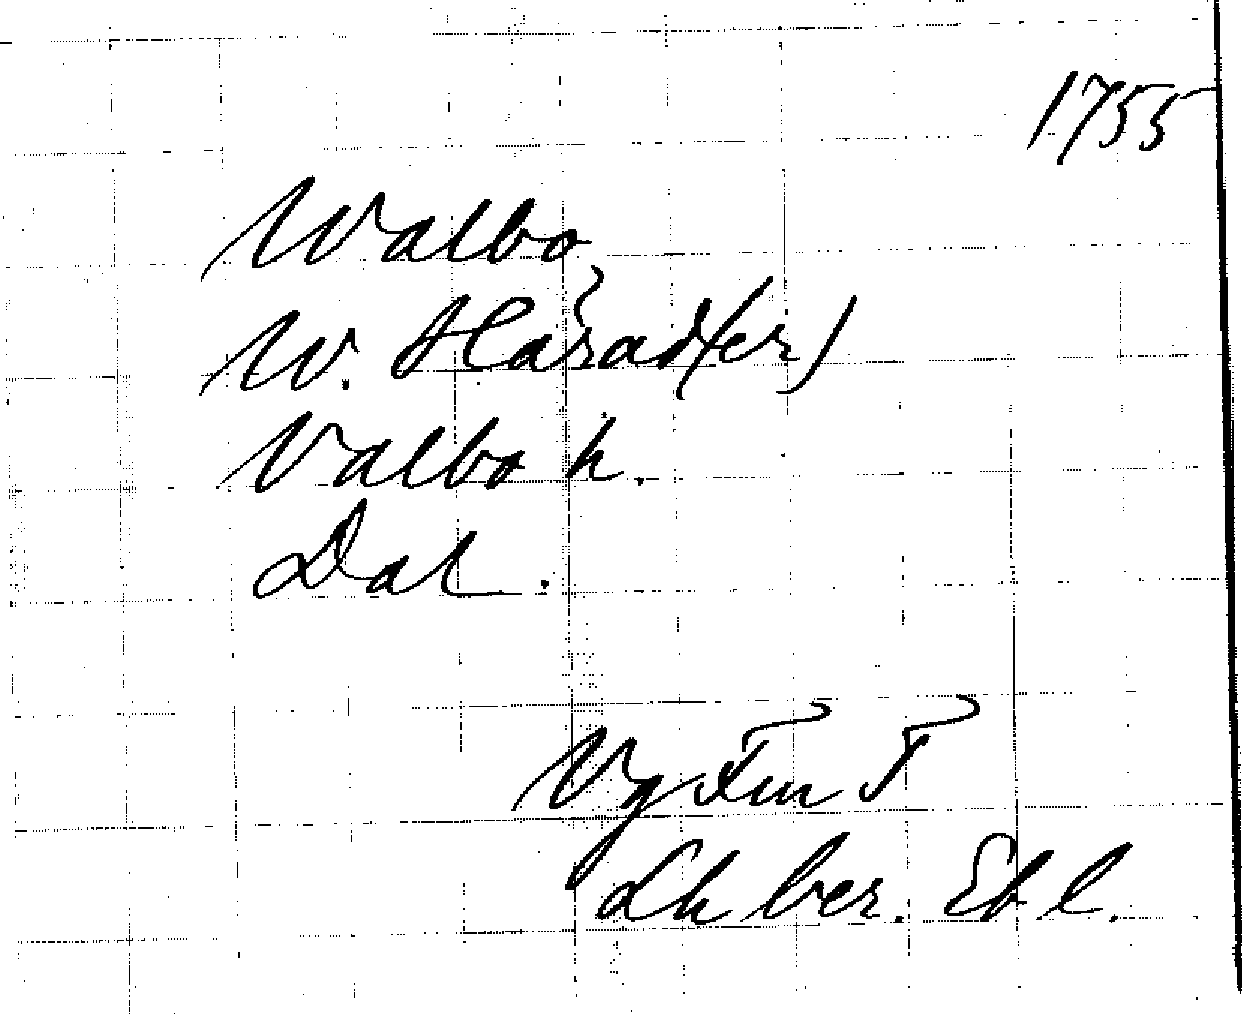 1755
Walbo
W. Härad(er)
Valbo h.
Dal.
Vg Fın T
Lh ber. Ebl.